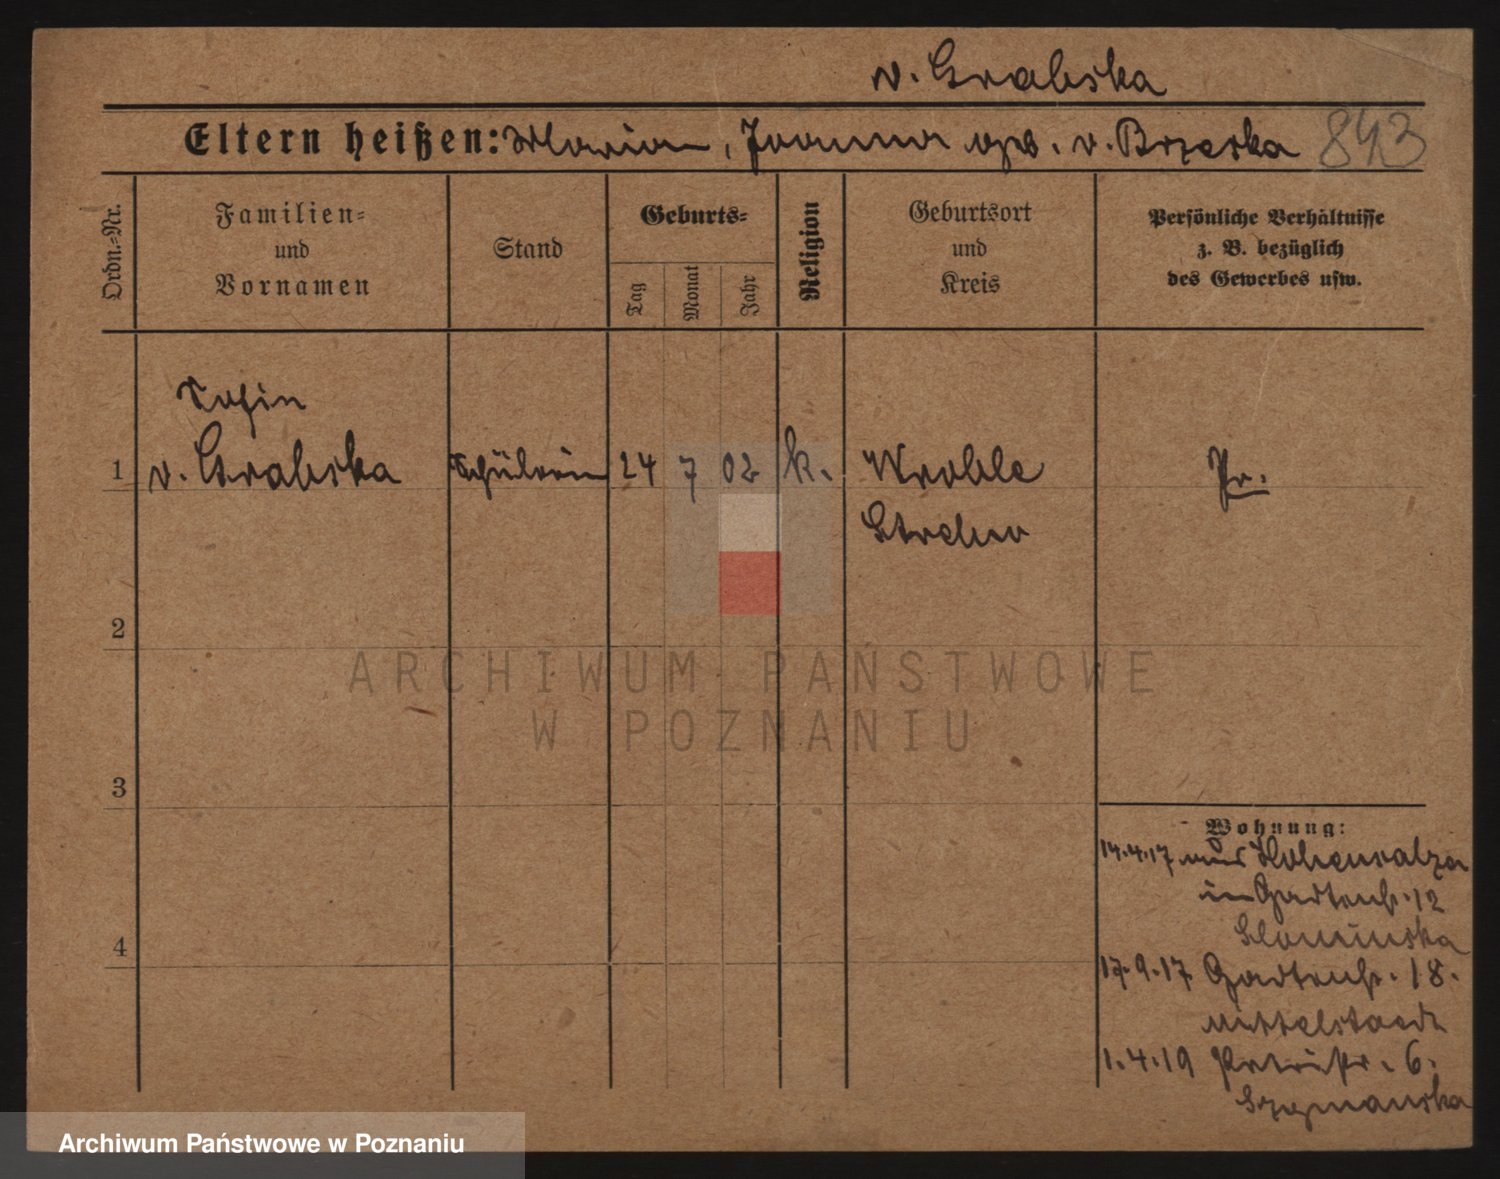 v. Grabska
Eltern heißen: Marian, Joanna geb. v. Brzeska 843
Ordn.-Nr.
Familien-
und
Vornamen
Stand
Geburts-
Tag
Monat
Jahr
Religion
Geburtsort
und
Kreis
Persönliche Verhältnisse
z. B. bezüglich
des Gewerbes usw.
Sofia
1 v. Grabska Schülerin 24 7 02 k. Wroble Pr.
Strelno
2
3
4
Wohnung:
14.4.17 aus Hohensalza
in Gartenstr. 12
Slominska
17.9.17. Gartenstr. 18.
Mittelstaedt
1.4.19 Petristr. 6.
Szymanska
ARCHIWUM PAŃSTWOWE
W POZNANIU
Archiwum Państwowe w Poznaniu